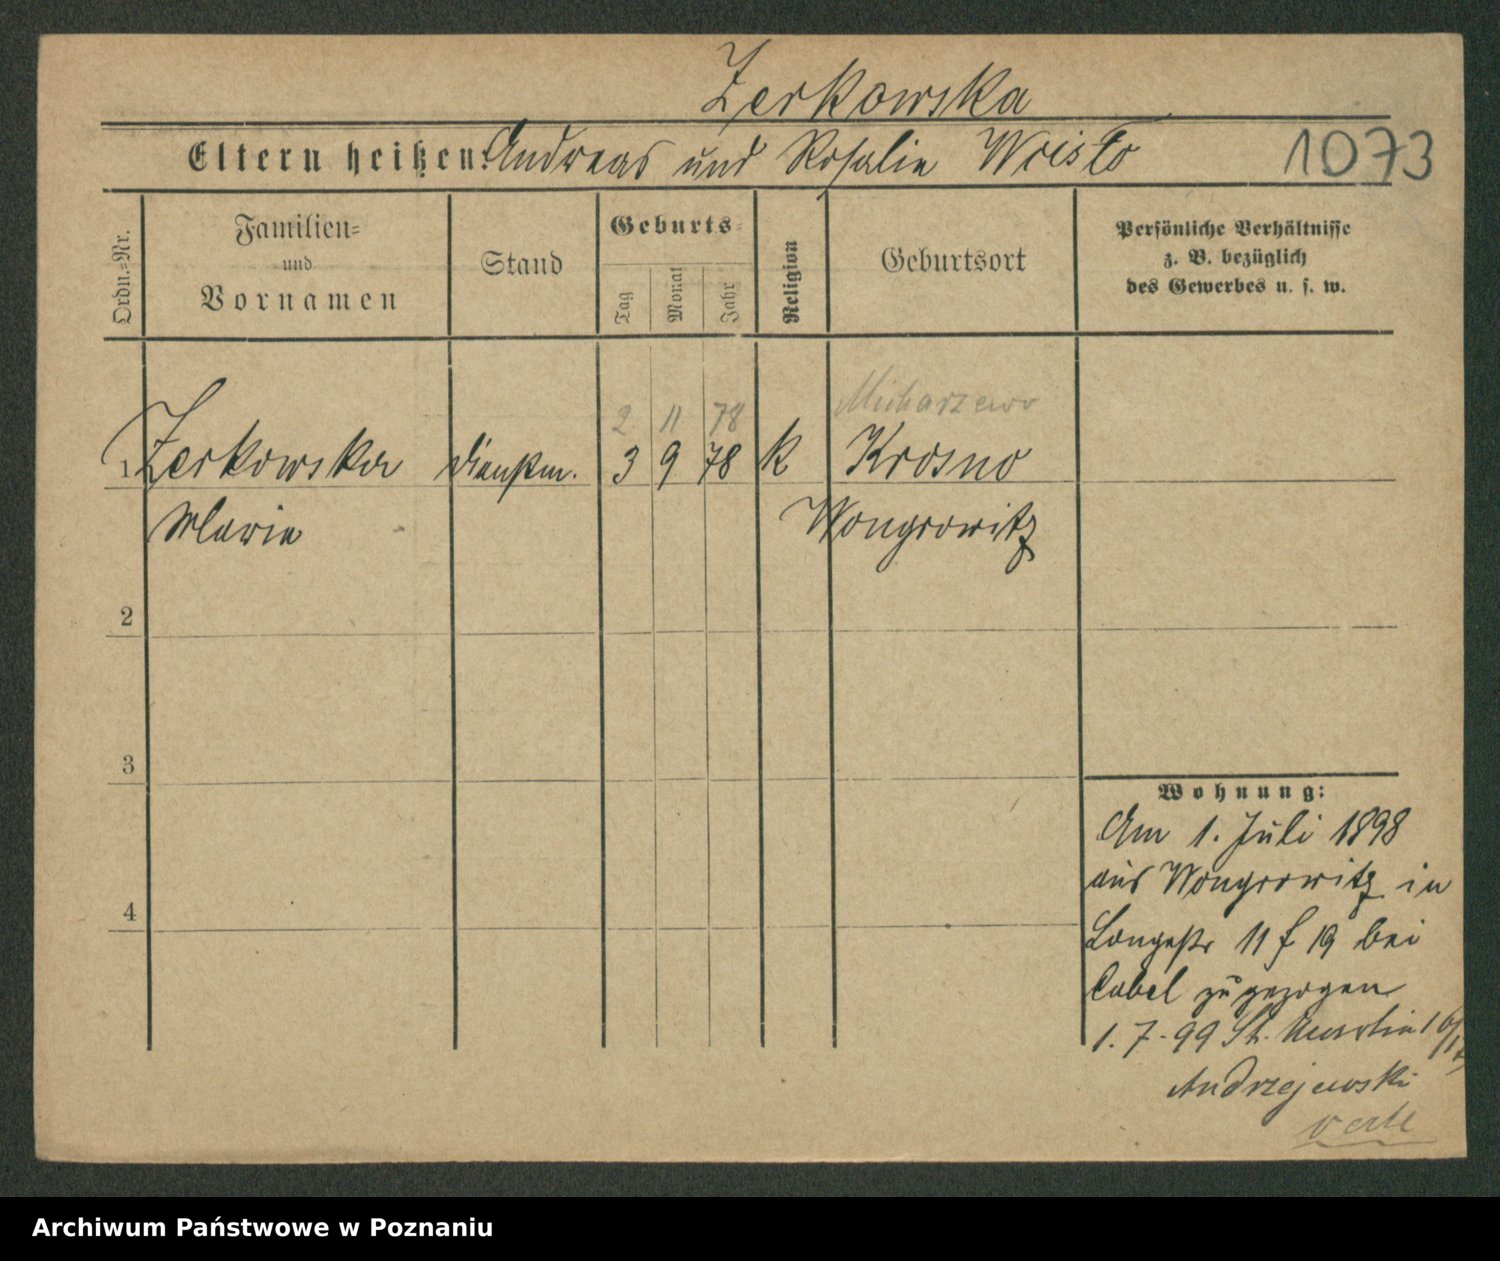 Zerkowska
Eltern heißen: Andreas und Rosalie
1073
Ordn.=Nr.
Familien=
und
Vornamen
Stand
Geburts=
Tag
Monat
Jahr
Religion
Geburtsort
Persönliche Verhältnisse
z. B. bezüglich
des Gewerbes u. s. w.
2 11 78
1 Zerkowska Dienstm. 3 9 78 k Krosno
Marie Wongrowitz
2
3
4
Wohnung:
Am 1. Juli 1898
aus Wongrowitz in
Langestr 11 f 19 bei
Cabel zugezogen
1.7.99 St. Martin
Andrzejewski
verte
Archiwum Państwowe w Poznaniu